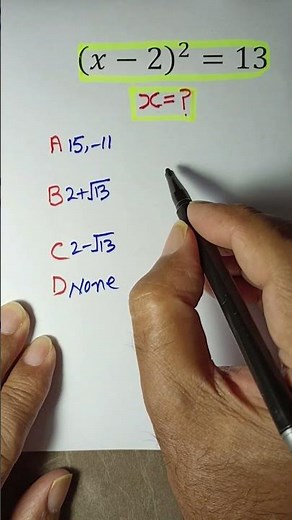 (x − 2)² = 13
x = ?
A 15, -11
B 2+√13
C 2-√13
D None